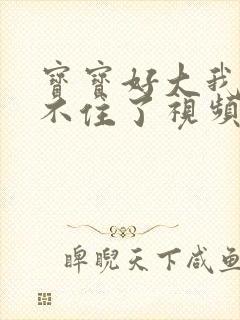 寶寶好大我
不住了視頻
睥睨天下咸鱼